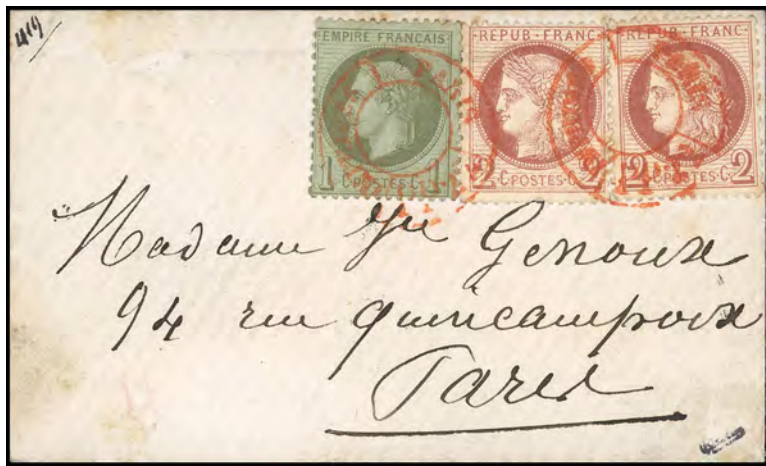 419
EMPIRE FRANCAIS
1 C·POSTES·C· 1
REPUB·FRANC·
2 C·POSTES·C· 2
REPUB·FRANC·
2 C·POSTES·C· 2
PARIS
Madame Genoux
94 rue quincampoix
Paris